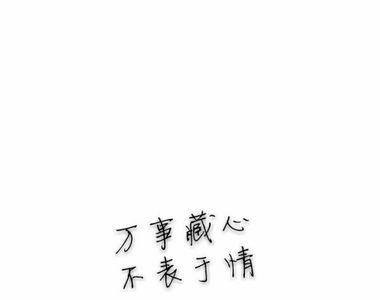 万事藏心
不表于情